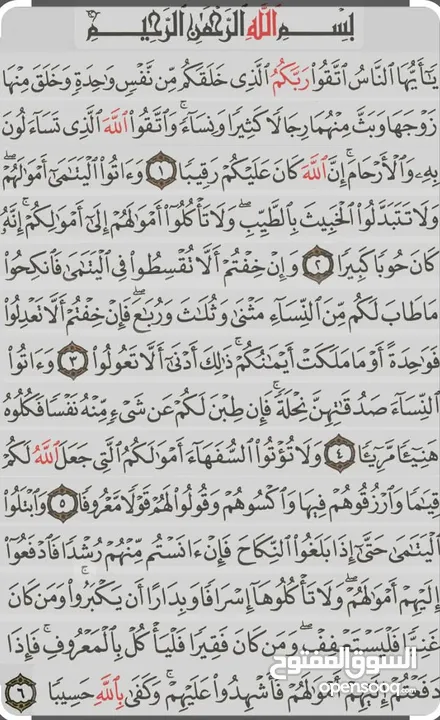 بِسْمِ اللَّهِ الرَّحْمَٰنِ الرَّحِيمِ
يَٰٓأَيُّهَا ٱلنَّاسُ ٱتَّقُوا۟ رَبَّكُمُ ٱلَّذِى خَلَقَكُم مِّن نَّفْسٍ وَٰحِدَةٍ وَخَلَقَ مِنْهَا
زَوْجَهَا وَبَثَّ مِنْهُمَا رِجَالًا كَثِيرًا وَنِسَآءً ۚ وَٱتَّقُوا۟ ٱللَّهَ ٱلَّذِى تَسَآءَلُونَ
بِهِۦ وَٱلْأَرْحَامَ ۚ إِنَّ ٱللَّهَ كَانَ عَلَيْكُمْ رَقِيبًا ١ وَءَاتُوا۟ ٱلْيَتَٰمَىٰٓ أَمْوَٰلَهُمْ ۖ
وَلَا تَتَبَدَّلُوا۟ ٱلْخَبِيثَ بِٱلطَّيِّبِ ۖ وَلَا تَأْكُلُوٓا۟ أَمْوَٰلَهُمْ إِلَىٰٓ أَمْوَٰلِكُمْ ۚ إِنَّهُۥ
كَانَ حُوبًا كَبِيرًا ٢ وَإِنْ خِفْتُمْ أَلَّا تُقْسِطُوا۟ فِى ٱلْيَتَٰمَىٰ فَٱنكِحُوا۟
مَا طَابَ لَكُم مِّنَ ٱلنِّسَآءِ مَثْنَىٰ وَثُلَٰثَ وَرُبَٰعَ ۖ فَإِنْ خِفْتُمْ أَلَّا تَعْدِلُوا۟
فَوَٰحِدَةً أَوْ مَا مَلَكَتْ أَيْمَٰنُكُمْ ۚ ذَٰلِكَ أَدْنَىٰٓ أَلَّا تَعُولُوا۟ ٣ وَءَاتُوا۟
ٱلنِّسَآءَ صَدُقَٰتِهِنَّ نِحْلَةً ۚ فَإِن طِبْنَ لَكُمْ عَن شَىْءٍ مِّنْهُ نَفْسًا فَكُلُوهُ
هَنِيٓـًٔا مَّرِيٓـًٔا ٤ وَلَا تُؤْتُوا۟ ٱلسُّفَهَآءَ أَمْوَٰلَكُمُ ٱلَّتِى جَعَلَ ٱللَّهُ لَكُمْ
قِيَٰمًا وَٱرْزُقُوهُمْ فِيهَا وَٱكْسُوهُمْ وَقُولُوا۟ لَهُمْ قَوْلًا مَّعْرُوفًا ٥ وَٱبْتَلُوا۟
ٱلْيَتَٰمَىٰ حَتَّىٰٓ إِذَا بَلَغُوا۟ ٱلنِّكَاحَ فَإِنْ ءَانَسْتُم مِّنْهُمْ رُشْدًا فَٱدْفَعُوٓا۟
إِلَيْهِمْ أَمْوَٰلَهُمْ ۖ وَلَا تَأْكُلُوهَآ إِسْرَافًا وَبِدَارًا أَن يَكْبَرُوا۟ ۚ وَمَن كَانَ
غَنِيًّا فَلْيَسْتَعْفِفْ ۖ وَمَن كَانَ فَقِيرًا فَلْيَأْكُلْ بِٱلْمَعْرُوفِ ۚ فَإِذَا
دَفَعْتُمْ إِلَيْهِمْ أَمْوَٰلَهُمْ فَأَشْهِدُوا۟ عَلَيْهِمْ ۚ وَكَفَىٰ بِٱللَّهِ حَسِيبًا ٦
السوق المفتوح
opensooq.com